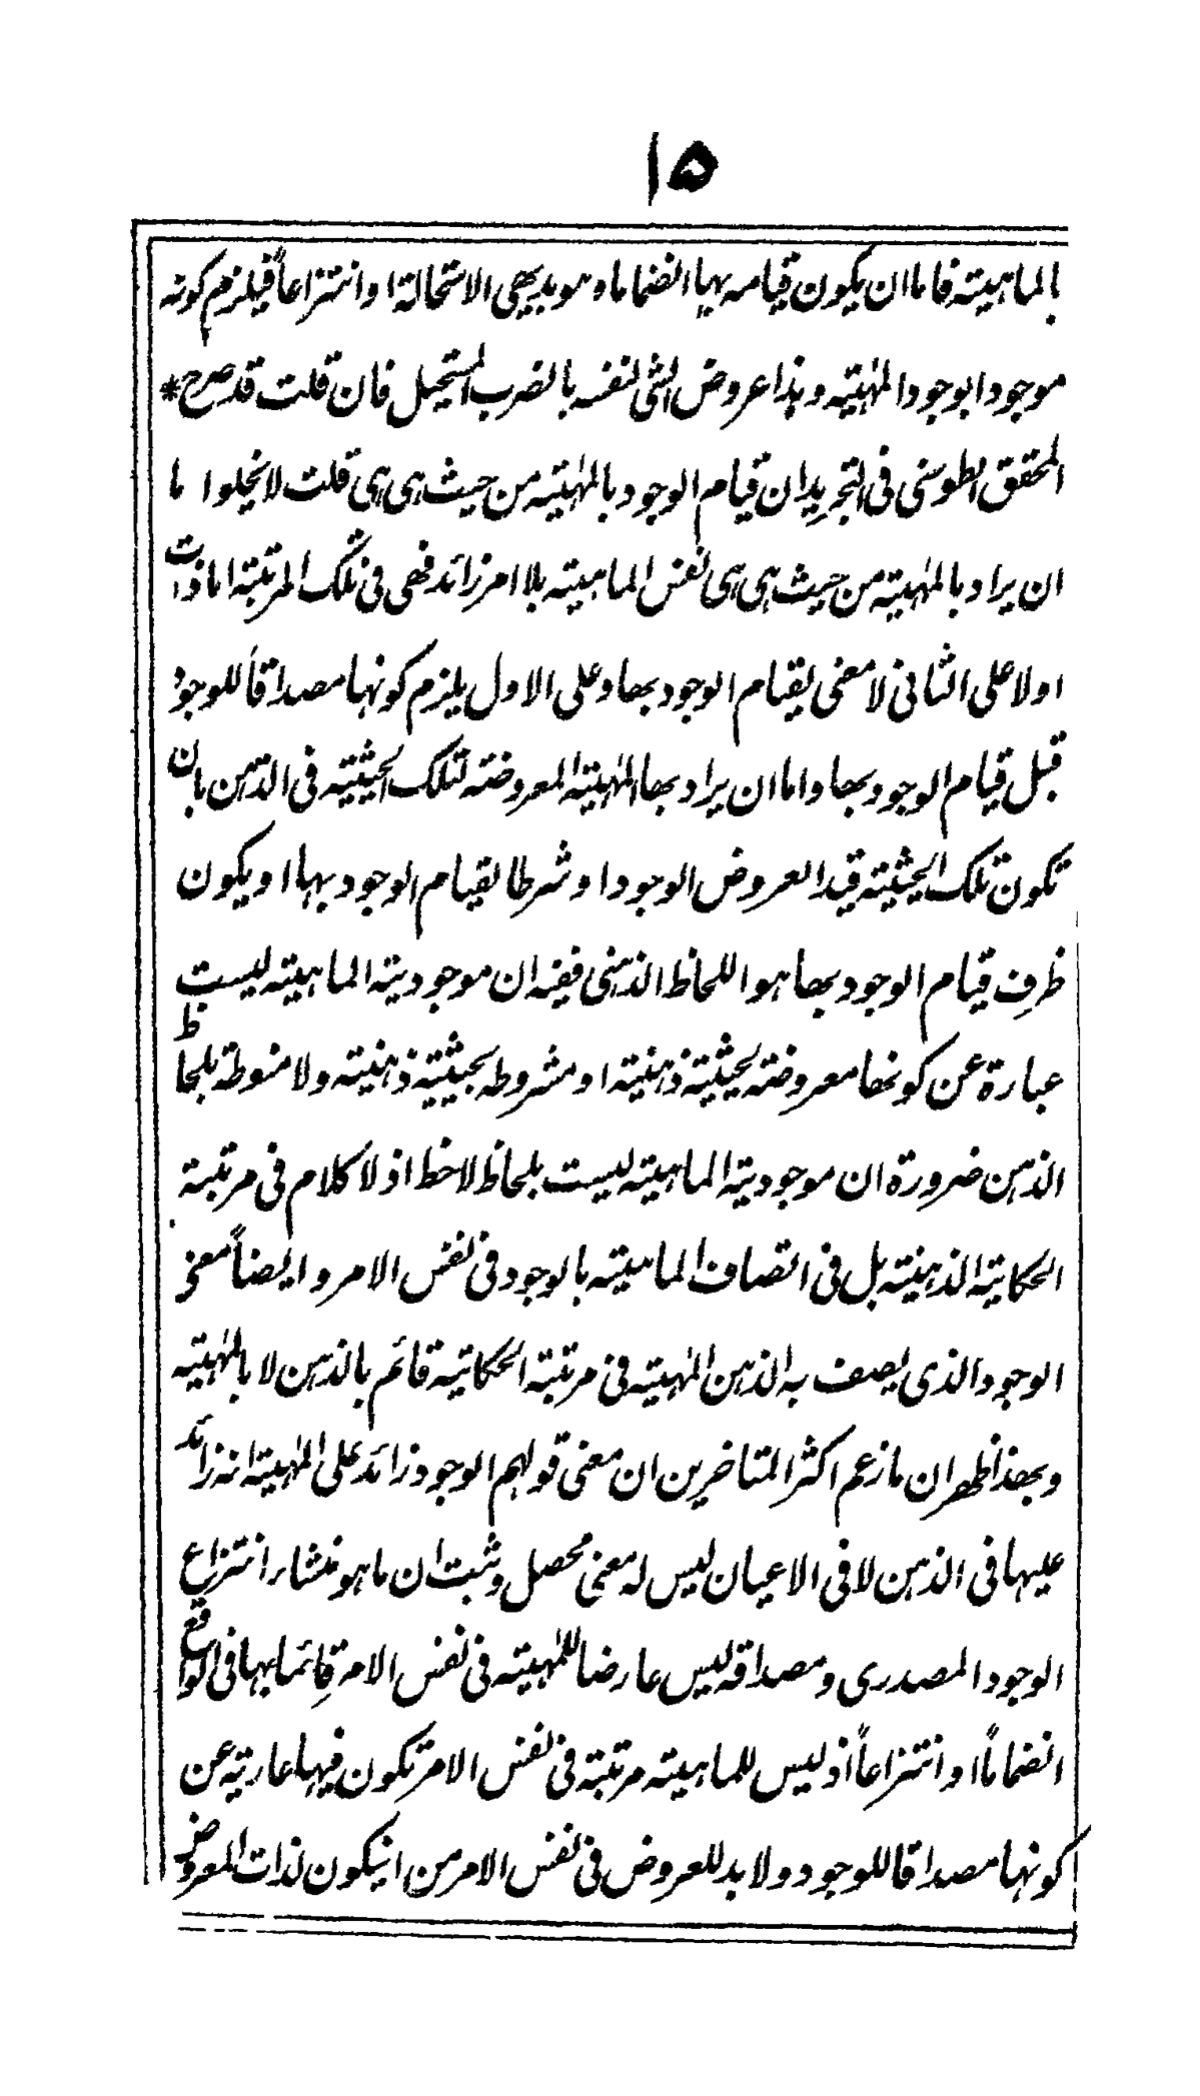 ۱۵
بالماهيته فاما ان يكون قيامه بها انضماما وهو بديهي الاستحالة او انتزاعاً فيلزم كونه
موجودا بوجود المهٰيته وهذا عروض الشئ لنفسه بالضرب المستحيل فان قلت قد صرح*
المحقق الطوسي فى التجريد ان قيام الوجود بالمهٰيته من حيث هى هى قلت لا يخلوا ما
ان يراد بالمهٰيته من حيث هى هى نفس الماهيته بلا امر زائد فهى فى تلك المرتبة اما ذات
اولا على الثانى لا معنى لقيام الوجود بها وعلى الاول يلزم كونها مصداقاً للوجود
قبل قيام الوجود بها واما ان يراد بها المهٰيته المعروضته لتلك الحيثيته فى الذهن بان
تكون تلك الحيثيته قيدا لعروض الوجود او شرطا لقيام الوجود بها او يكون
ظرف قيام الوجود بها هوا اللحاظ الذهنى ففيه ان موجوديته الماهيته ليست
عبارة عن كونها معروضته بحيثيته ذهنيته او مشروطه بحيثيته ذهنيته ولا منوطة بلحاظ
الذهن ضرورة ان موجوديته الماهيته ليست بلحاظ لاحظ اذ لا كلام فى مرتبة
الحكايته الذهنيته بل فى اتصاف الماهيته بالوجود فى نفس الامر وايضاً معنى
الوجود الذى يصف به الذهن المهٰيته فى مرتبة الحكايته قائم بالذهن لا بالمهٰيته
وبهذا ظهر ان ما زعم اكثر المتاخرين ان معنى قولهم الوجود زائد على المهٰيته انه زائد
عليها فى الذهن لا فى الاعيان ليس له معنى محصل وثبت ان ما هو منشاء انتزاع
الوجود المصدرى ومصداقه ليس عارضا للمهٰيته فى نفس الامر قائما بها فى الواقع
انضماماً او انتزاعاً اذ ليس للماهيته مرتبة فى نفس الامر تكون فيها عاريته عن
كونها مصداقا للوجود ولا بد للعروض فى نفس الامر من انيكون لذات المعروض